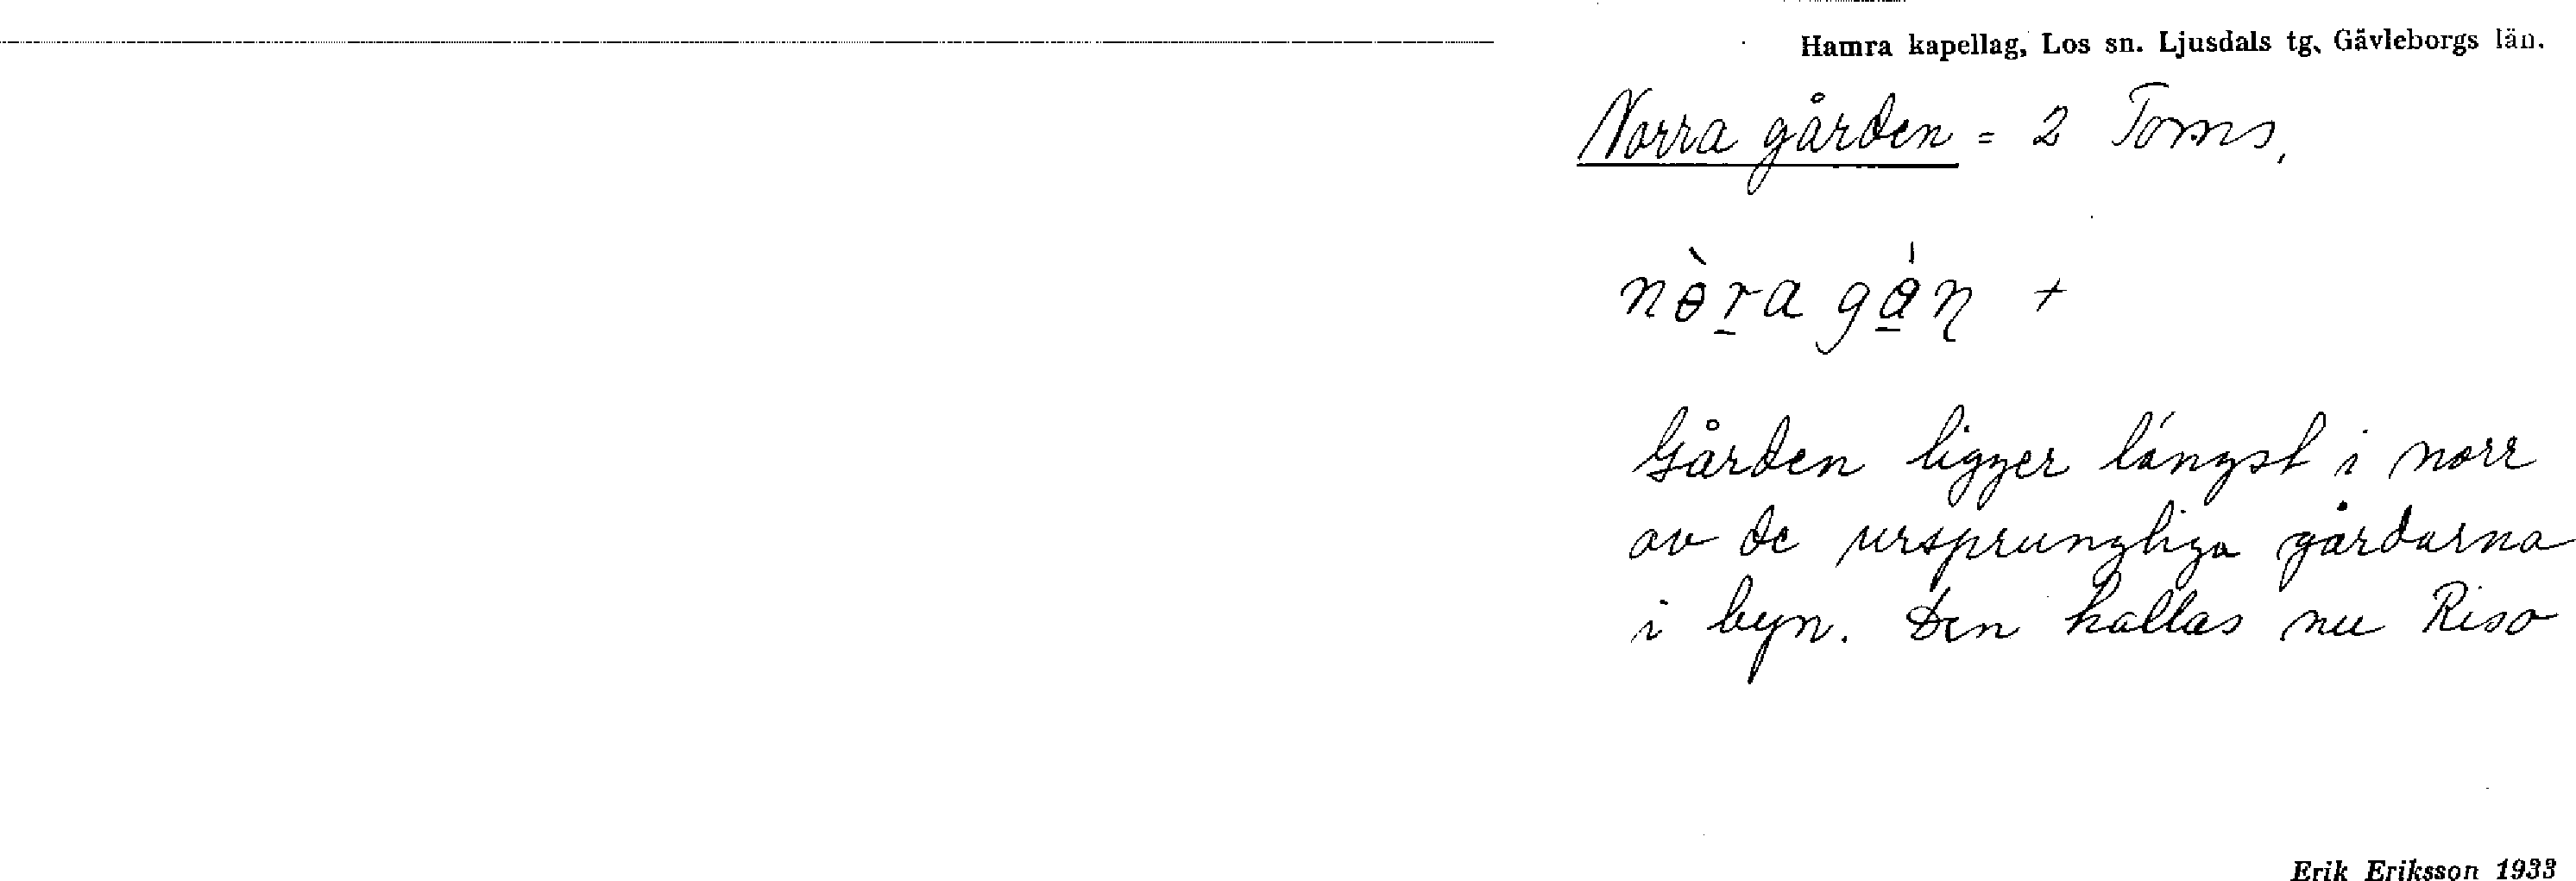 Hamra kapellag, Los sn. Ljusdals tg, Gävleborgs län.
Norra gården = 2 Toms,
nɵ̀r̲a gá̲ṇ +
Gården ligger längst i norr
av de ursprungliga gårdarna
i byn. Den kallas nu Riso
Erik Eriksson 1933